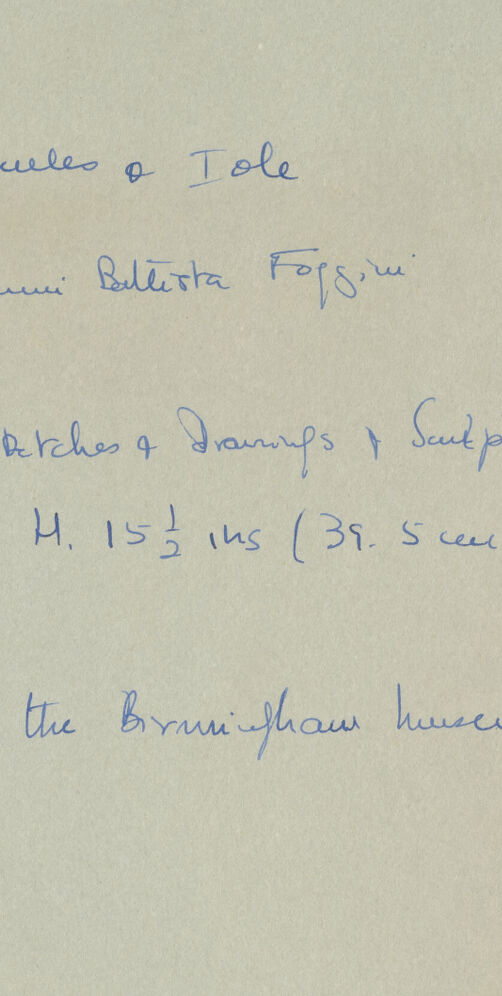 cules & Iole
nni Battista Foggini
ketches & Drawings & Sculp
H. 15 1/2 ins (39.5 cm
the Birmingham Museu